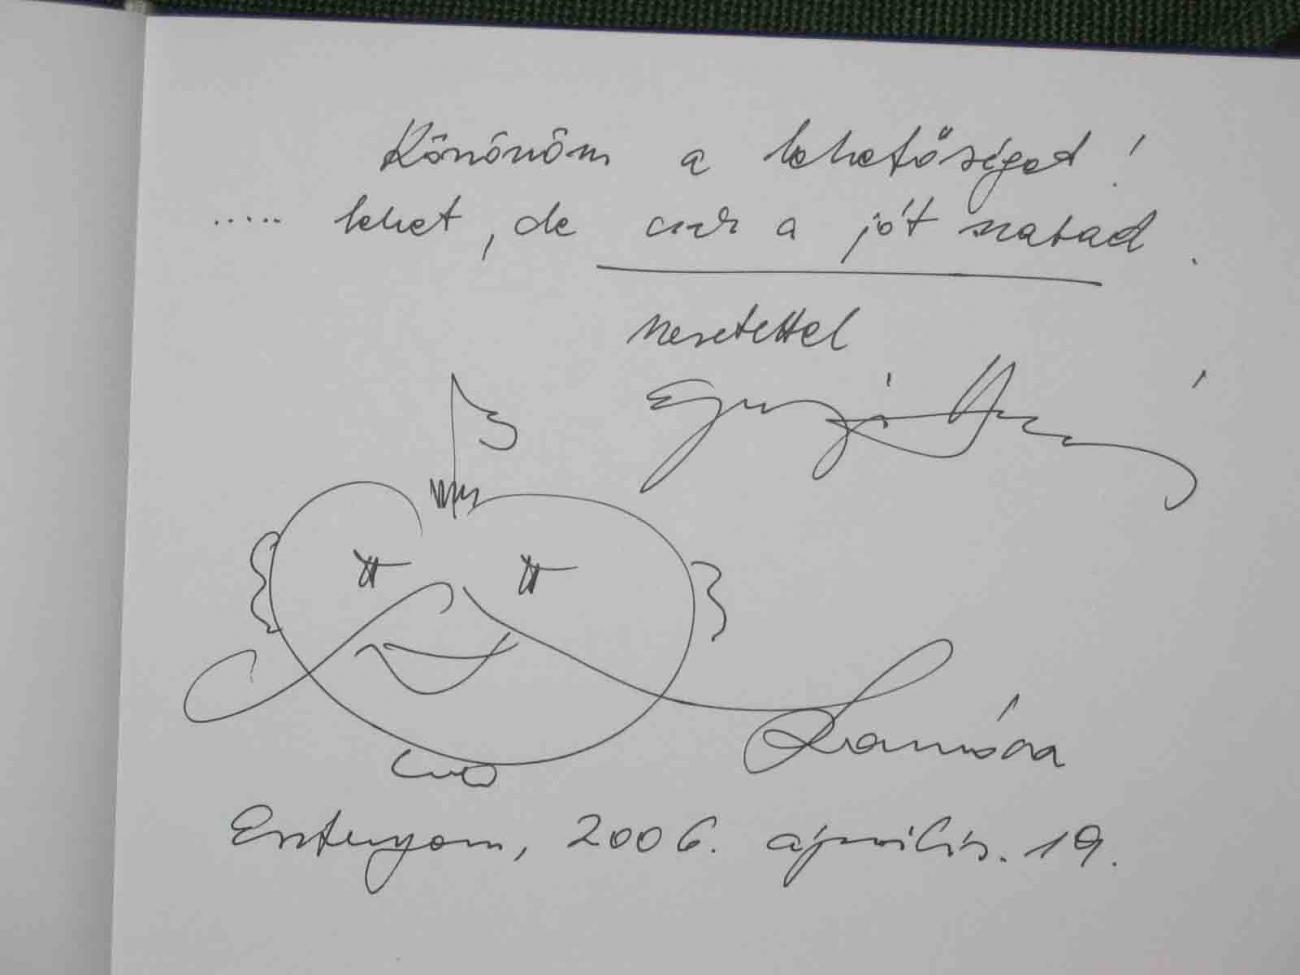 Köszönöm a lehetőséget!
..... lehet, de csak a jót szabad.
szeretettel
Esztergom, 2006. április. 19.